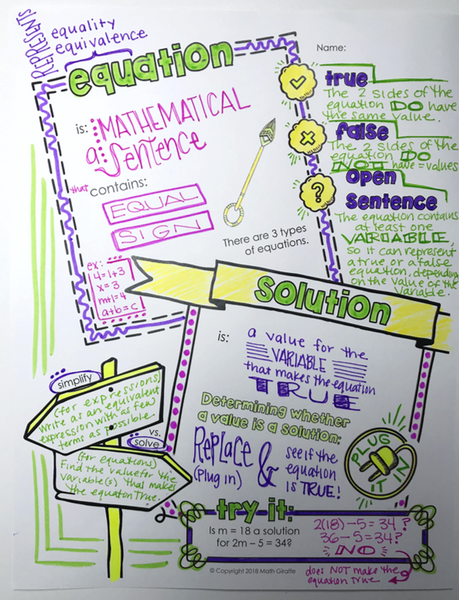 REPRESENTS
equality
equivalence
Name:
equation
is:
a MATHEMATICAL
Sentence
that contains:
EQUAL
SIGN
ex:
4=1+3
x=3
m+1=4
a+b=c
There are 3 types
of equations.
true
The 2 sides of the
equation DO have
the same value.
false
The 2 sides of the
equation DO
NOT have = values
open
sentence
The equation contains
at least one
VARIABLE,
so it can represent
a true or a false
equation, depending
on the value of the
variable.
solution
is:
a value for the
VARIABLE
that makes the equation
TRUE
Determining whether
a value is a solution:
REPLACE
(plug in)
&
see if the
equation
is TRUE!
PLUG
IT IN
simplify
(for expressions)
Write as an equivalent
expression with as few
terms as possible.
vs.
solve
(for equations)
Find the value for the
variable(s) that makes
the equation True.
try it:
Is m = 18 a solution
for 2m – 5 = 34?
2(18)-5=34?
36-5=34?
NO
does NOT make the
equation true
© Copyright 2016 Math Giraffe